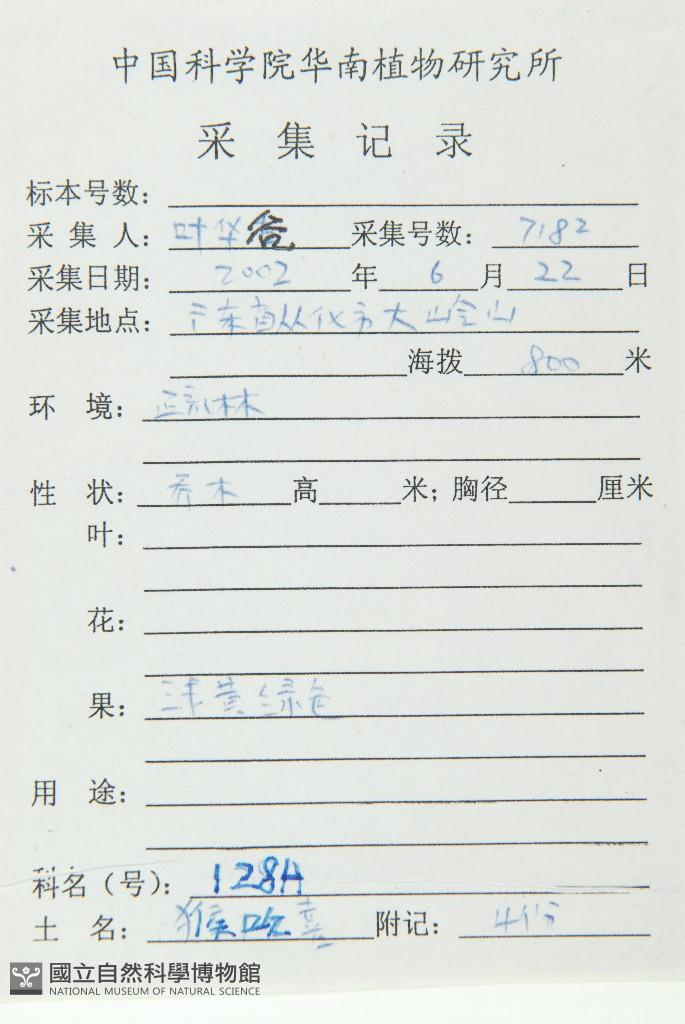 中国科学院华南植物研究所
采集记录
标本号数：
采集人：叶华谷 采集号数：7182
采集日期：2002 年 6 月 22 日
采集地点：广东省从化市大岭山
海拨 800 米
环境：林
性状：乔木 高 米；胸径 厘米
叶：
花：
果：球黄绿色
用途：
科名（号）：128A
土名：猴欢喜 附记：4份
國立自然科學博物館
NATIONAL MUSEUM OF NATURAL SCIENCE